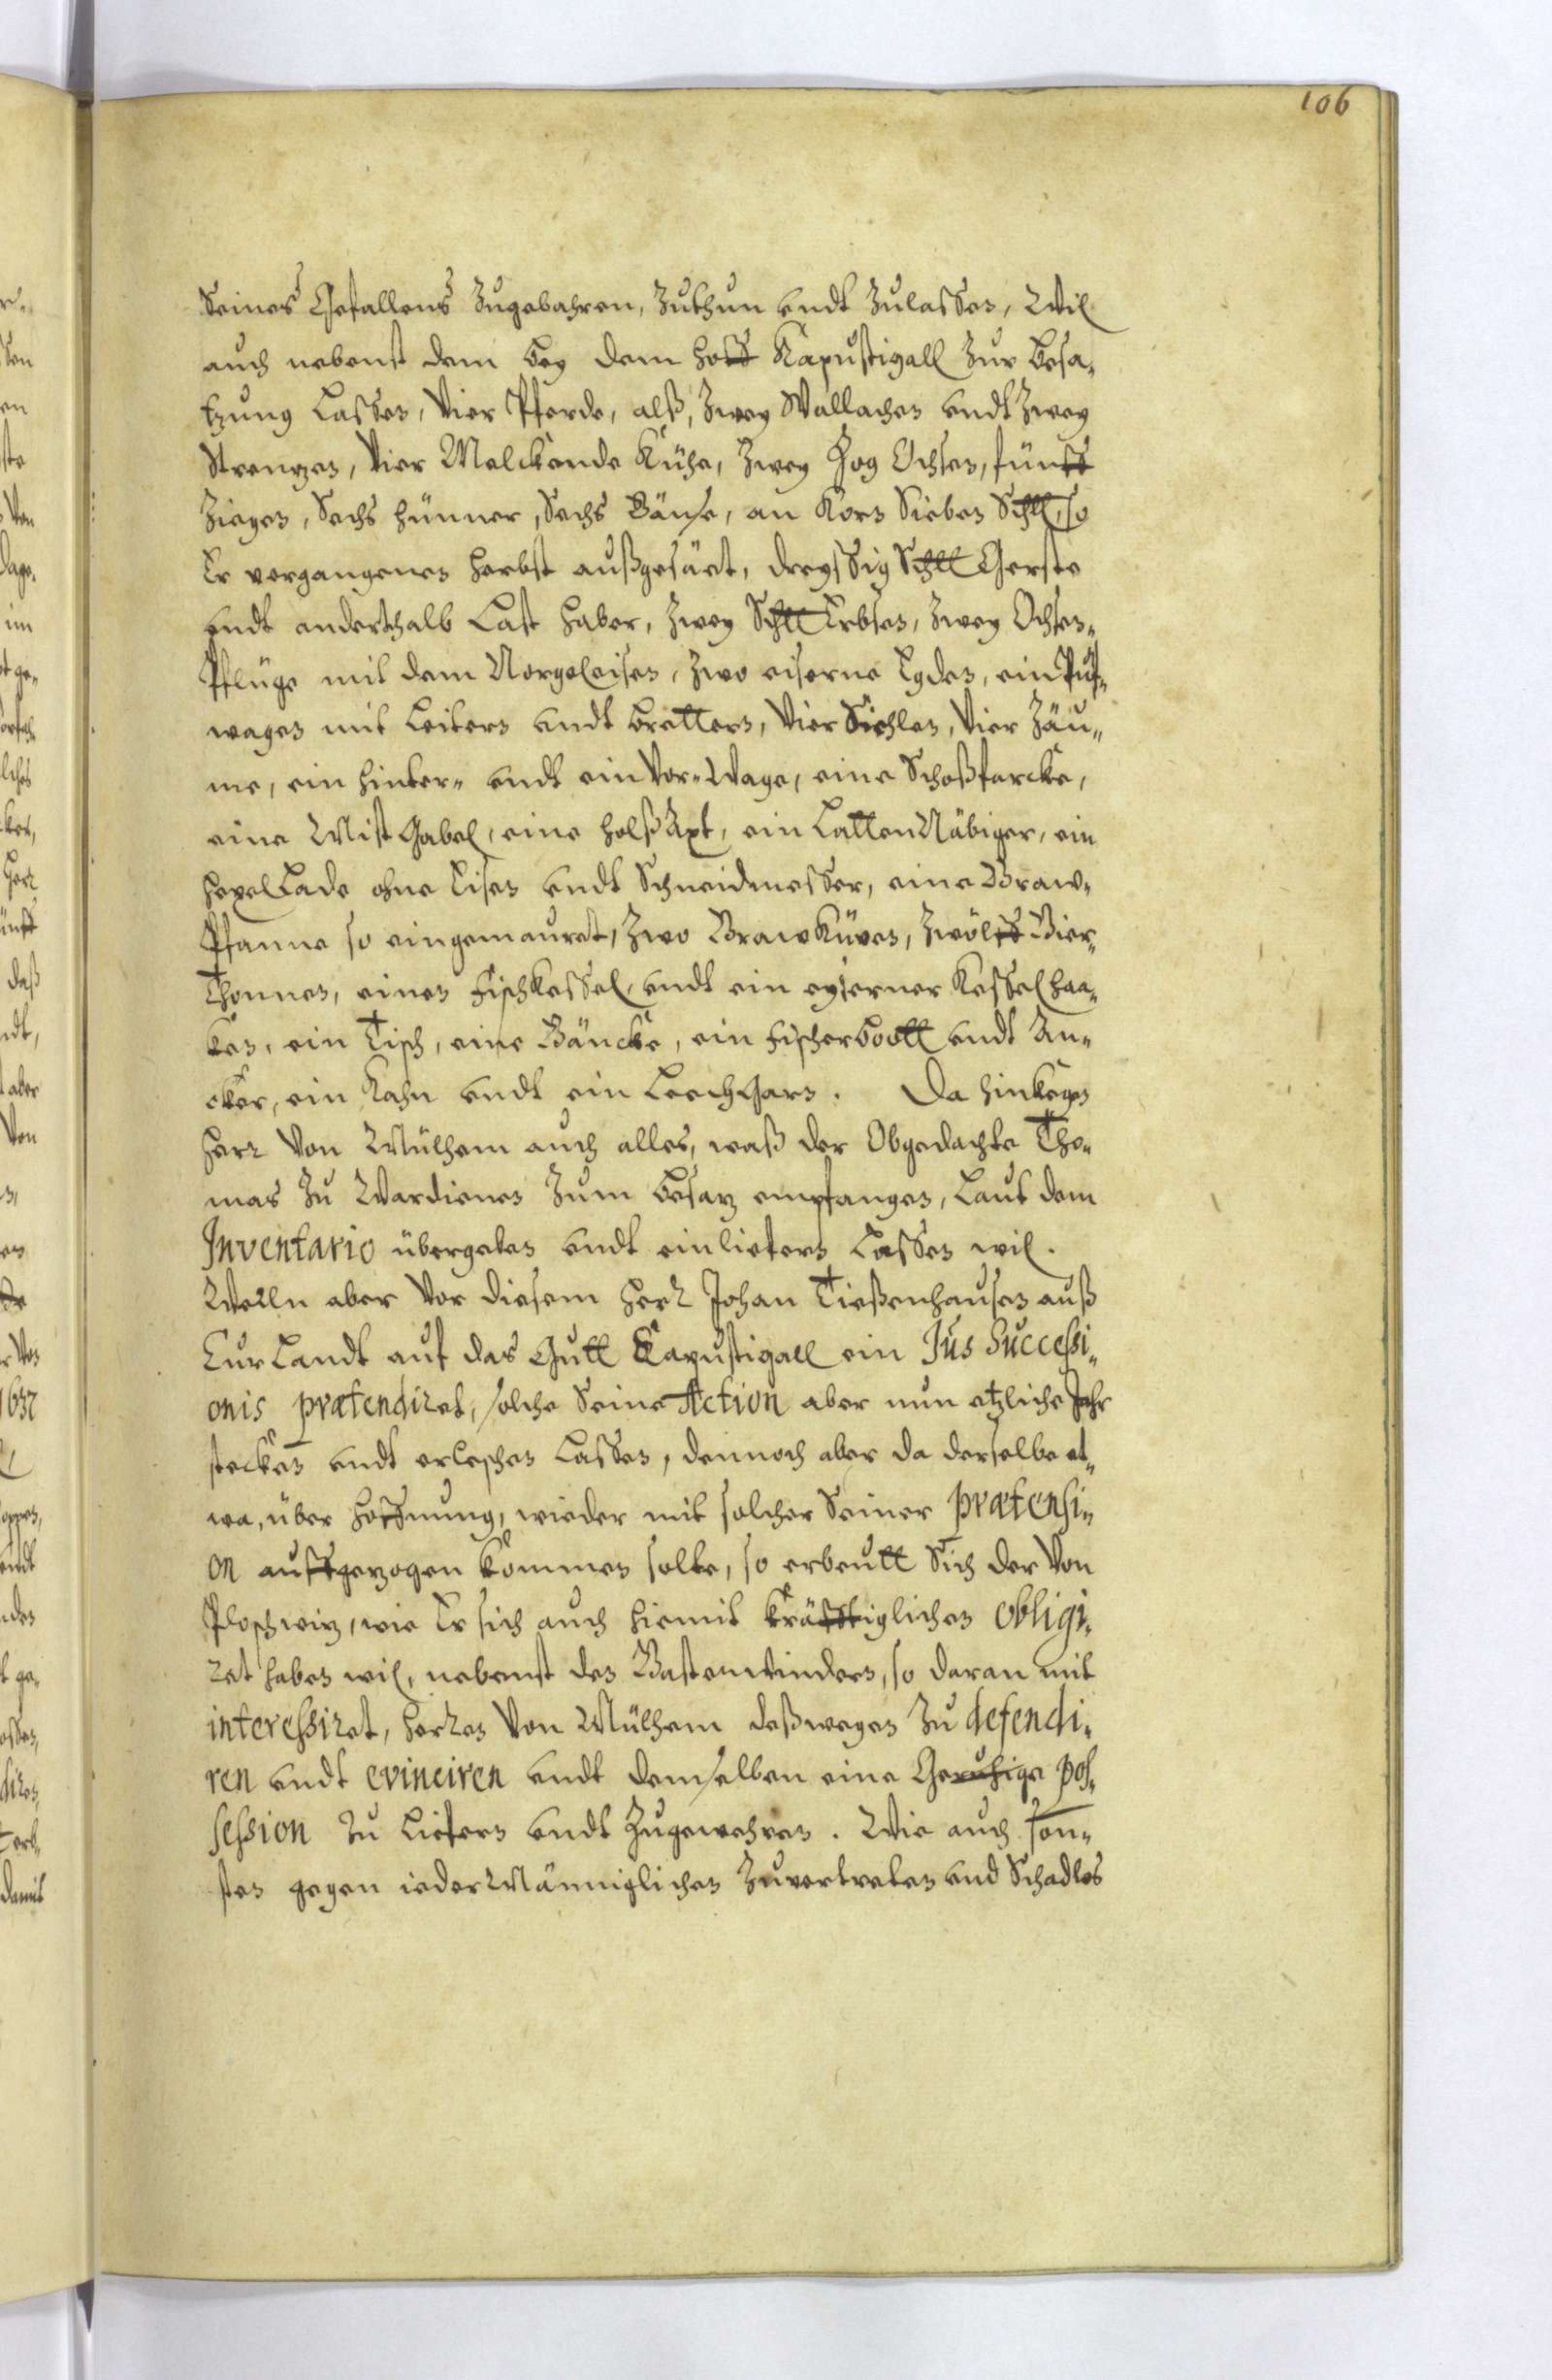 106
Seines Gefallens Zugebahren, Zuthun undt Zulaßen, Wil
auch nebenst dem bey dem hoff Kapustigall Zur besa-
tzung Laßen, Vier Pferde, alß, Zwey Wallachen undt Zwey
Strentzen, Vier Melckende Kühe, Zwey Zog Ochsen, fünff
Ziegen, Sechs hünner, Sechs Gänse, an Korn Sieben Schll, so
Er vergangenen herbst außgesäet, dreyßig Schll Gerste
undt anderthalb Last haber, Zwey Schll Erbsen, Zwey Ochsen-
Pflüge mit dem Norgeleisen, Zwo eiserne Eyden, ein Puf-
wagen mit Leitern undt brettern, Vier Siehlen, Vier Zäu-
me, ein hinter- undt ein Vor-Wage, eine Schoßfarcke,
eine Mist Gabel, eine holß Axt, ein Latten Näbiger, ein
hexel Lade ohne Eisen undt Schneidmeßer, eine Braw-
Pfanne so eingemauret, Zwo Braw Küven, Zwölff Bier-
Thonnen, einen Fischkeßel, undt ein eyserner Keßel haa-
ken, ein Tisch, eine Bäncke, ein Fischerbott undt An-
cker, ein Kahn undt ein Leech Garn. Da hinkegen
herr Von Mülhem auch alles, waß der Obgedachte Tho-
mas Zu Wardienen Zum besatz empfangen, Laut dem
Inventario übergeben undt einliefern Laßen wil.
Welln aber Vor diesem herr Johan Tießenhausen auß
CurLandt auf das Gutt Kapustigall ein Jus Successi-
onis prætendiret, solche Seine Action aber nun etzliche Jahr
stecken undt erleschen Laßen, dennoch aber da derselbe et-
wa, über hoffnung, wieder mit solcher Seiner prætensi-
on auffgezogen kommen solte, so erbeutt Sich der Von
Ploschwitz, wie Er sich auch hiemit kräfftiglichen obligi-
ret haben wil, nebenst den Bastenwindern, so daran mit
interessiret, herren Von Mülhem deßwegen Zu defendi-
ren undt evinciren undt demselben eine Geruhige pos-
session Zu Liefern undt Zugewehren. Wie auch son-
sten gegen jeder Männiglichen Zuvertreten und Schadlos